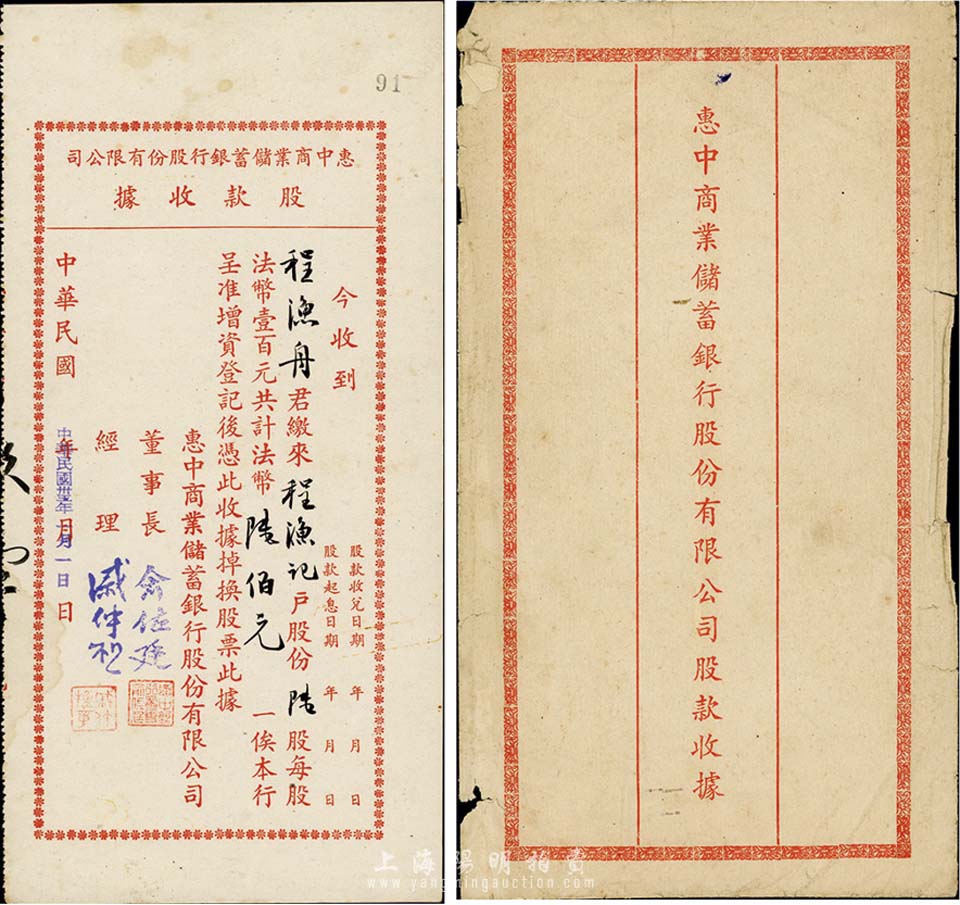 91
惠中商業儲蓄銀行股份有限公司
股款收據
今收到
股款收兌日期 年 月 日
股款起息日期 年 月 日
程漁舟君繳來程漁記戶股份陸股每股
法幣壹百元共計法幣陸佰元一俟本行
呈准增資登記後憑此收據掉換股票此據
惠中商業儲蓄銀行股份有限公司
董事長 俞佐廷
經理 戚仲樵
中華民國 年 月 日
中華民國卅年 月一日
惠中商業儲蓄銀行股份有限公司股款收據
上海陽明拍賣
www.yangmingauction.com